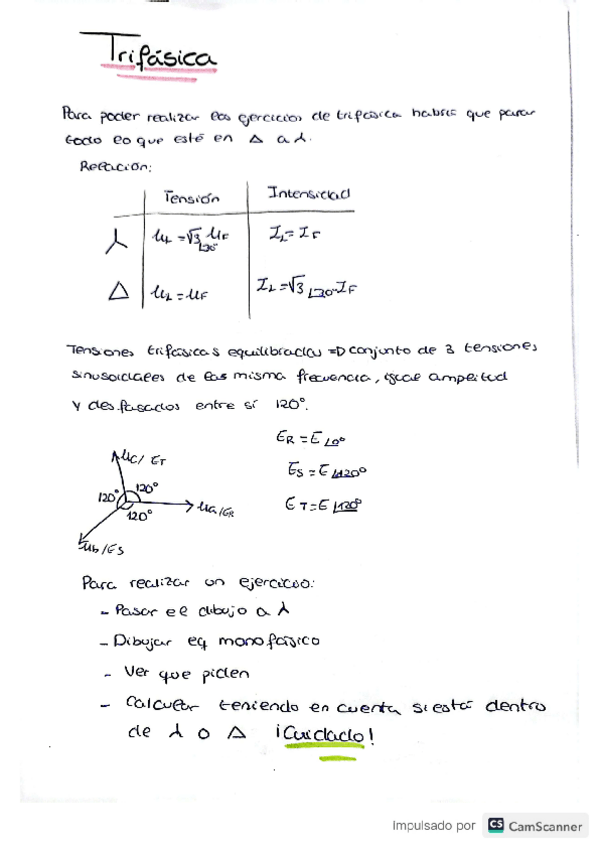 Trifásica
Para poder realizar los ejercicios de trifásica habría que pasar
todo lo que esté en Δ a ⅄.
Relación:
Tensión Intensidad
⅄ UL = √3 UF IL = IF
Δ UL = UF IL = √3 IF
Tensiones trifásicas equilibradas => conjunto de 3 tensiones
sinusoidales de las misma frecuencia, igual amplitud
y desfasados entre sí 120°.
ER = E∠0°
UC/ET
ES = E
120° 120° UA/ER
ET = E∠120°
120°
Ub/ES
Para realizar un ejercicio:
- Pasar el dibujo a ⅄
- Dibujar eq monofásico
- Ver que piden
- Calcular teniendo en cuenta si está dentro
de ⅄ o Δ ¡Cuidado!
Impulsado por CS CamScanner